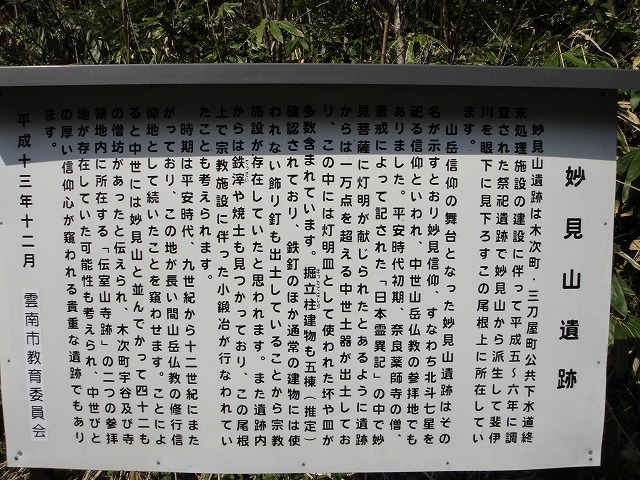 妙見山遺跡
妙見山遺跡は木次町・三刀屋町公共下水道終
末処理施設の建設に伴って平成五～六年に調
査された祭祀遺跡で妙見山から派生して斐伊
川を眼下に見下ろすこの尾根上に所在してい
ます。
山岳信仰の舞台となった妙見山遺跡はその
名が示すとおり妙見信仰、すなわち北斗七星を
祀る信仰といわれ、中世山岳仏教の参拝地でも
ありました。平安時代初期、奈良薬師寺の僧、
景戒によって記された「日本霊異記」の中で妙
見菩薩に灯明が献じられたとあるように遺跡
からは一万点を超える中世土器が出土してお
り、この中には灯明皿として使われた坏や皿が
多数含まれています。掘立柱建物も五棟（推定）
確認されており、鉄釘のほか通常の建物には使
われない飾り釘も出土していることから宗教
施設が存在していたと思われます。また遺跡内
からは鉄滓や焼土も見つかっており、この尾根
上で宗教施設に伴った小鍛冶が行なわれてい
たことも考えられます。
時期は平安時代、九世紀から十二世紀にまた
がっており、この地が長い間山岳仏教の修行信
仰地として続いたことを窺わせます。ことによ
ると中世には妙見山と並んでかって四十二も
の僧坊があったと伝えられ、木次町宇谷及び寺
領地内に所在する「伝室山寺跡」の二つの参拝
地が存在していた可能性も考えられ、中世びと
の厚い信仰心が窺われる貴重な遺跡でもあり
ます。
平成十三年十二月 雲南市教育委員会